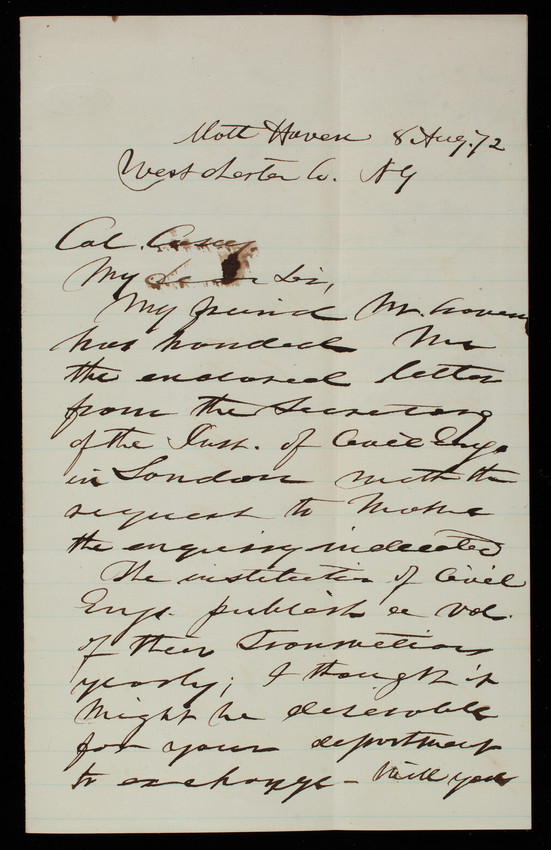 Mott Haven 8 Aug. 72
Westchester Co. NY
Col. Casey
My Dear Sir,
My friend Mr. Craven
has handed me
the enclosed letter
from the Secretary
of the Inst. of Civil Engs.
in London with the
request to make
the enquiry indicated
The institution of Civil
Engs. publish a vol.
of their Transactions
yearly; I thought it
might be desirable
for your department
to exchange – Will you